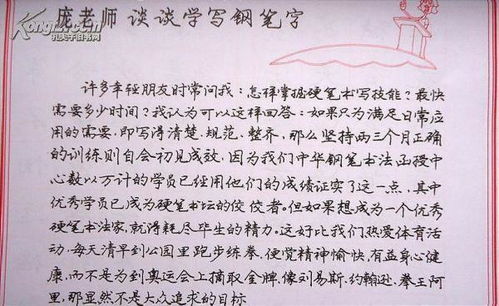 庞老师 谈谈学写钢笔字
许多年轻朋友时常问我：怎样掌握硬笔书写技能？最快
需要多少时间？我认为可以这样回答：如果只为满足日常应
用的需要，即写得清楚、规范、整齐，那么坚持两三个月正确
的训练则自会初见成效，因为我们中华钢笔书法函授中
心数以万计的学员已经用他们的成绩证实了这一点，其中
优秀学员已成为硬笔书坛的佼佼者。但如果想成为一个优秀
硬笔书法家，就得耗尽毕生的精力。这好比我们热爱体育活
动，每天清早到公园里跑步练拳，便觉精神愉快，有益身心健
康，而不是为到奥运会上摘取金牌，像刘易斯、约翰逊、拳王阿
里，那显然不是大众追求的目标